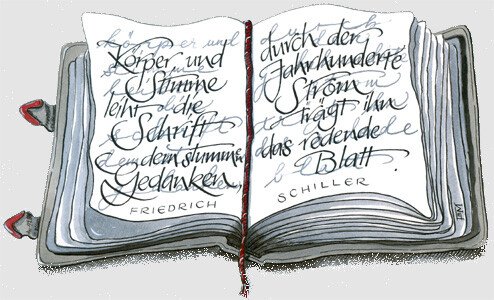 Körper und
Stimme
leiht die
Schrift
dem stummen
Gedanken,
FRIEDRICH
durch der
Jahrhunderte
Strom
trägt ihn
das redende
Blatt.
SCHILLER